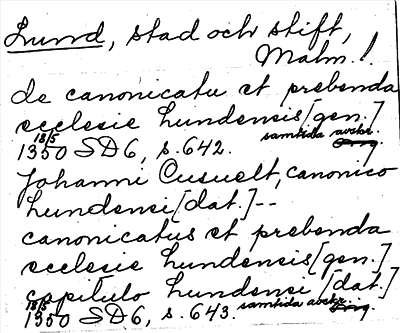 Lund, stad och stift,
Malm. l.
de canonicatu et prebenda
ecclesie lundensis [gen.]
18/5 samtida avskr.
1350 SD6, s. 642.
Johanni Cusuelt, canonico
lundensi [dat.] --
canonicatus et prebenda
ecclesie lundensis [gen.]
capitulo lundensi [dat.]
18/5 samtida avskr.
1350 SD6, s. 643.